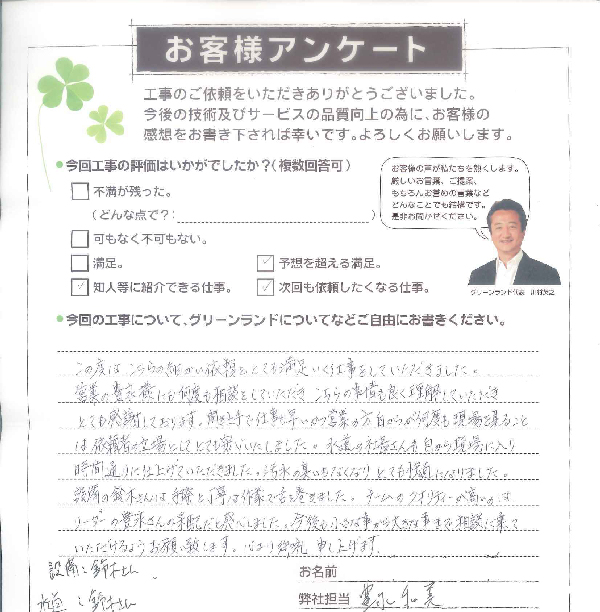 お客様アンケート
工事のご依頼をいただきありがとうございました。
今後の技術及びサービスの品質向上の為に、お客様の
感想をお書き下されば幸いです。よろしくお願いします。
今回工事の評価はいかがでしたか?(複数回答可)
不満が残った。
(どんな点で?:
)
可もなく不可もない。
満足。
予想を超える満足。
知人等に紹介できる仕事。
次回も依頼したくなる仕事。
お客様の声が私たちを熱くします。
厳しいお言葉、ご提案、
もちろんお誉めの言葉など
どんなことでも結構です。
是非お聞かせください。
グリーンランド代表
今回の工事について、グリーンランドについてなどご自由にお書きください。
この度はこちらの細かい依頼をとても満足いく工事をしていただきました。
営業の 様にも何度も相談をしていただき こちらの事情も良く理解していただき
とても感謝しております。 仕事も早いかつ営業の方自らが何度も現場を見ること
は依頼者の立場としてとても安心いたしました。水道の 自から現場に入り
時間通りに仕上げていただきました。汚水の臭いもなくなりとても綺麗になりました。
設備の鈴木さんは 丁寧な作業で舌を巻きました。チームのクオリティーが高いのは
リーダーの さんの采配だと感じました。今後も小さな事から大きな事まで相談に乗って
いただけるようお願い致します。心より御礼申し上げます。
設備:鈴木さん
鈴木さん
お名前
弊社担当